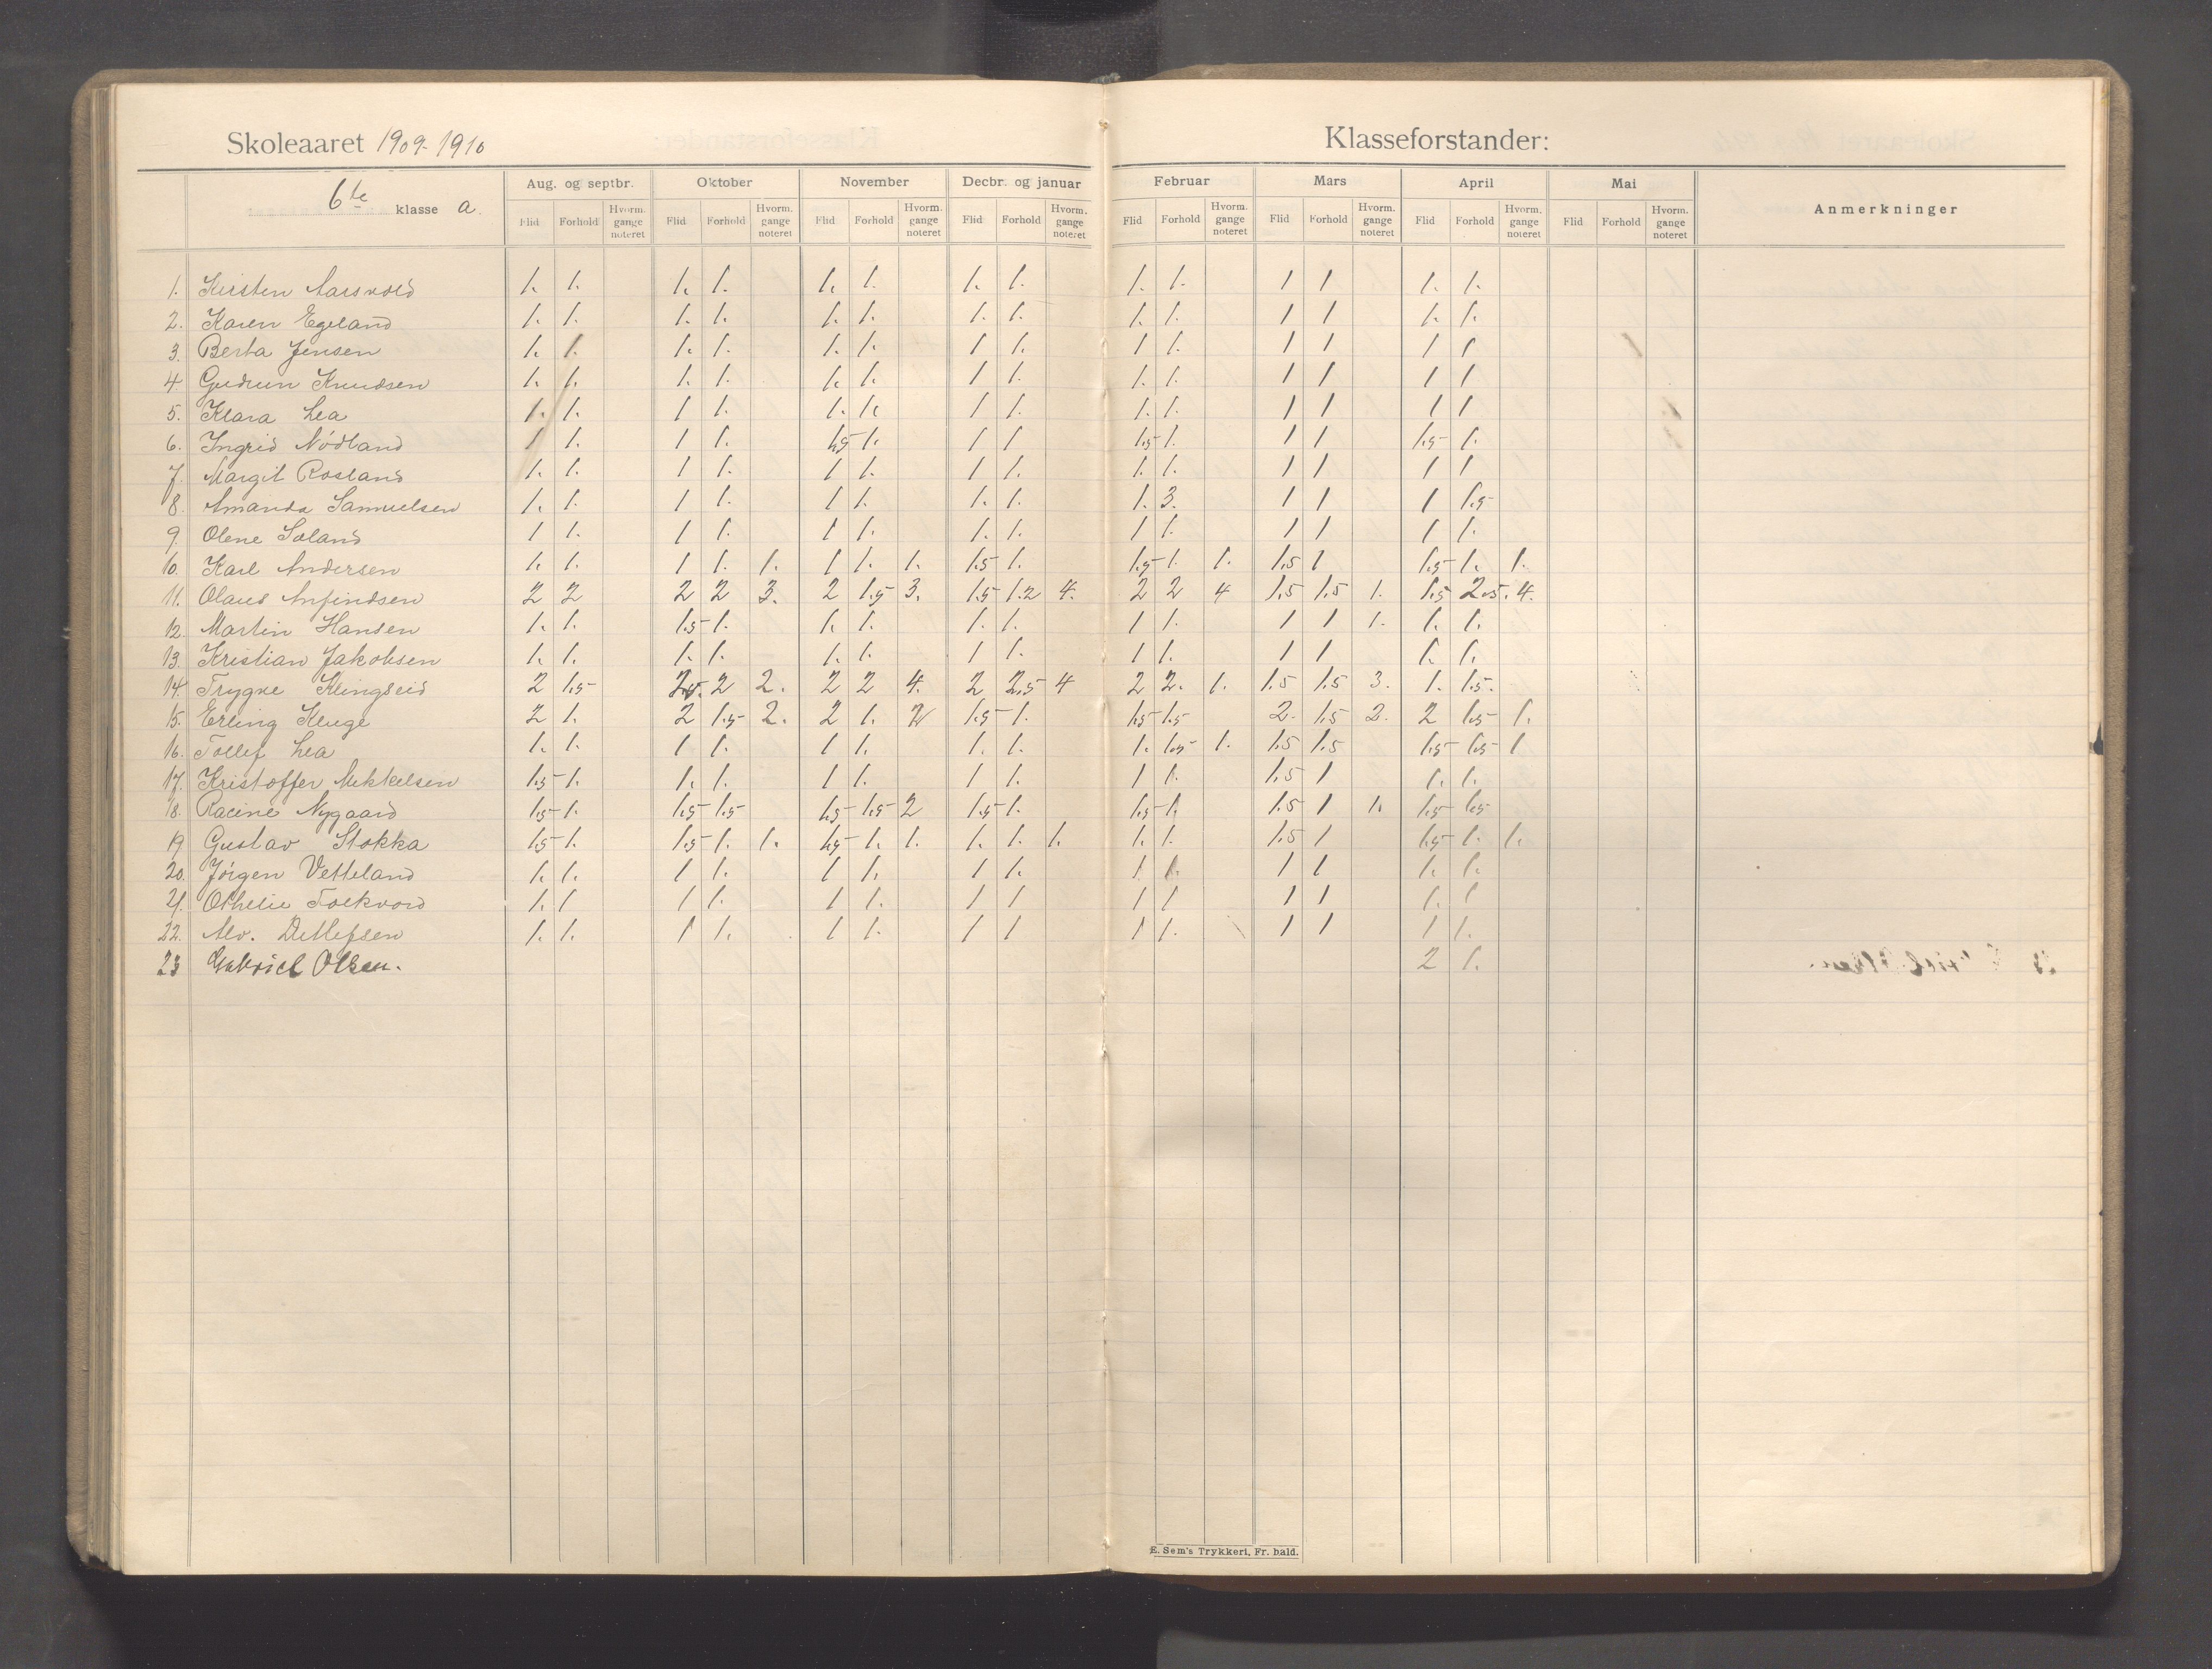 Skoleaaret 1909-1910 Klasseforstander:
6te klasse a. Aug. og septbr. Oktober November Decbr. og januar Februar Mars April Mai Anmerkninger
Flid Forhold Hvorm. gange noteret Flid Forhold Hvorm. gange noteret Flid Forhold Hvorm. gange noteret Flid Forhold Hvorm. gange noteret Flid Forhold Hvorm. gange noteret Flid Forhold Hvorm. gange noteret Flid Forhold Hvorm. gange noteret Flid Forhold Hvorm. gange noteret
1. Kirsten Aarsvold 1. 1. 1. 1. 1. 1. 1. 1. 1. 1. 1 1 1. 1.
2. Karen Egeland 1. 1. 1. 1. 1. 1. 1. 1. 1. 1. 1 1 1. 1.
3. Berta Jensen 1. 1. 1. 1. 1. 1. 1 1. 1 1. 1 1 1 1
4. Gudrun Knudsen 1. 1. 1. 1. 1. 1. 1 1. 1. 1. 1 1 1 1
5. Klara Lea 1. 1. 1 1. 1. 1. 1 1. 1. 1. 1 1 1 1
6. Ingrid Nódland 1 1. 1 1. 1.5 1. 1 1 1.5 1. 1 1 1.5 1.
7. Margit Rosland 1. 1. 1 1. 1 1. 1 1. 1. 1. 1 1 1 1
8. Amanda Samuelsen 1. 1. 1 1. 1 1. 1. 1. 1. 3. 1 1 1 1.5
9. Olene Soland 1 1. 1 1. 1 1. 1. 1. 1 1. 1 1 1 1.
10. Karl Andersen 1. 1. 1 1. 1. 1 1. 1. 1.5 1. 1.5 1. 1. 1.5 1 1.5 1. 1.
11. Olaus Anfindsen 2 2 2 2 3. 2 1.5 3. 1.5 1.2 4. 2 2 4 1.5 1.5 1. 1.5 2.5. 4.
12. Martin Hansen 1. 1. 1.5 1. 1. 1. 1. 1. 1 1. 1 1 1. 1. 1.
13. Kristian Jakobsen 1. 1. 1. 1. 1. 1. 1 1. 1 1. 1 1 1. 1.
14. Trygve Klingseid 2 1.5 2.5. 2 2. 2 2 4. 2 2.5 4 2 2. 1. 1.5 1.5 3. 1. 1.5.
15. Erling Kluge 2 1. 2 1.5 2. 2 1. 2 1.5 1. 1.5 1.5 2. 1.5 2. 2 1.5 1.
16. Tollef Lea 1. 1. 1 1. 1 1. 1. 1. 1. 1.5 1. 1.5 1.5 1.5 1.5 1
17. Kristoffer Mikkelsen 1.5 1. 1. 1. 1 1. 1 1. 1 1. 1.5 1 1. 1.
18. Racine Nygaard 1.5 1. 1.5 1.5 1.5 1.5 2 1.5 1. 1.5 1 1.5 1 1. 1.5 1.5
19 Gustav Stokka 1.5 1. 1.5 1. 1. 1.5 1. 1. 1. 1. 1. 1. 1. 1.5 1 1.5 1. 1.
20. Jórgen Vetteland 1. 1. 1 1. 1 1. 1 1. 1 1. 1 1 1. 1.
21. Othelie Folkvord 1. 1 1 1. 1 1. 1 1 1 1 1 1 1. 1
22. Alv. Detlefsen 1. 1. 1 1. 1 1. 1 1 1 1. 1 1 1 1.
23 Gabriel Olsen. 2 1.
E. Sem's Trykkeri, Fr.hald.